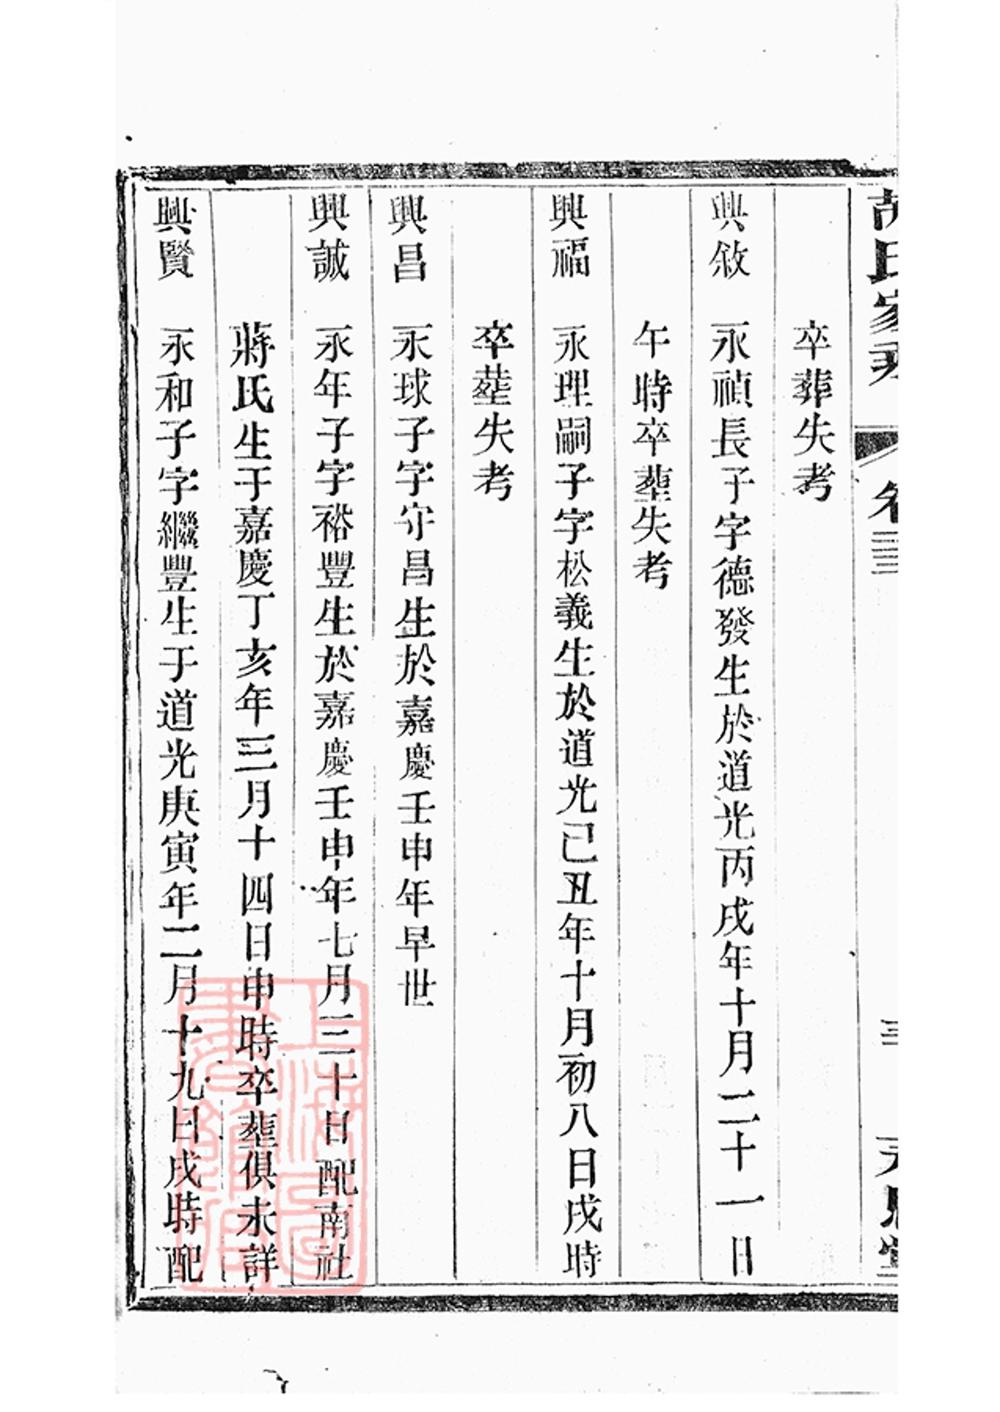 卒葬失考
興敘 永禎長子字德發生於道光丙戌年十月二十一日
午時卒塟失考
興福 永理嗣子字松義生於道光己丑年十月初八日戌時
卒塟失考
興昌 永球子字守昌生於嘉慶壬申年早世
興誠 永年子字裕豐生於嘉慶壬申年七月三十日配南社
蔣氏生于嘉慶丁亥年三月十四日申時卒塟俱未詳
興賢 永和子字繼豐生于道光庚寅年二月十九日戌時配